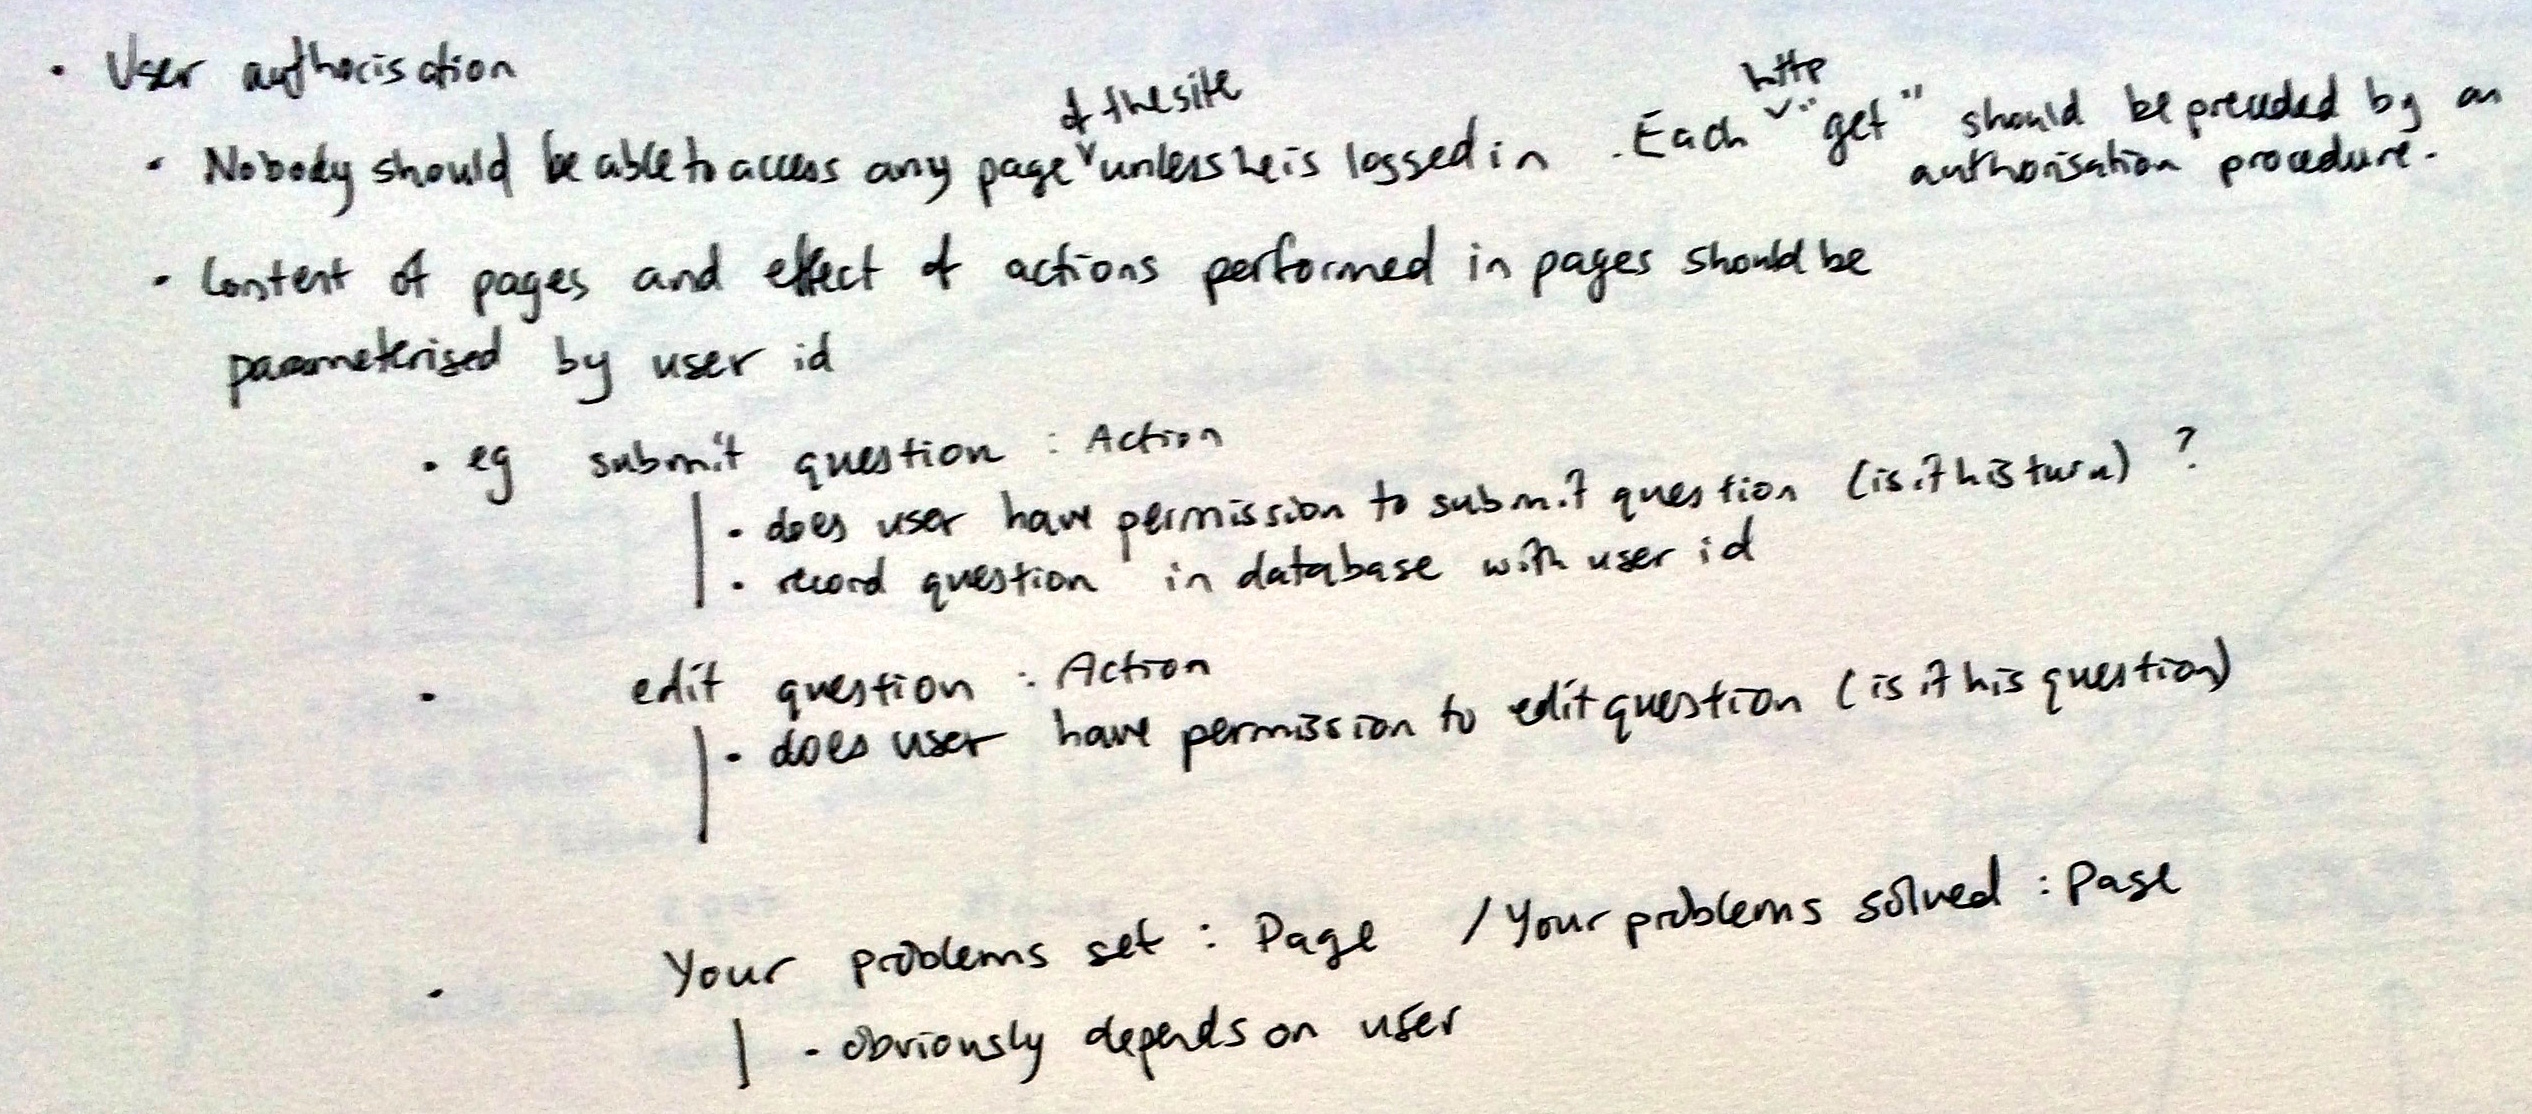 • User authorisation
• Nobody should be able to access any page of the site unless he is logged in. Each http "get" should be preceded by an
authorisation procedure.
• Content of pages and effect of actions performed in pages should be
parameterised by user id
• eg submit question : Action
• does user have permission to submit question (is it his turn) ?
• record question in database with user id
• edit question : Action
• does user have permission to edit question (is it his question)
• Your problems set : Page / Your problems solved : Page
• obviously depends on user